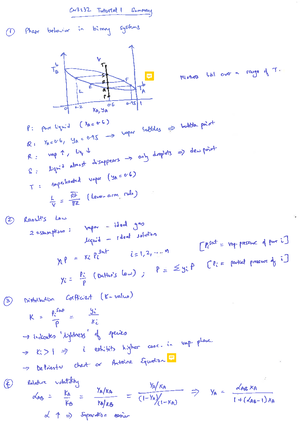 CN3132 Tutorial 1 Summary
① Phase behavior in binary systems
V
L
0 0.2 0.6 0.95 1
xA, yA
Mixture boil over a range of T.
P: pure liquid (xA = 0.6)
Q: xA = 0.6, yA = 0.95 → vapor bubbles ⇒ bubble point
R: vap ↑, liq ↓
S: liquid almost disappears → only droplets ⇒ dew point
T: superheated vapor (yA = 0.6)
(lever-arm rule)
② Raoult's Law
2 assumptions: vapor - ideal gas
liquid - ideal solution
yi P = xi Pi^sat i = 1, 2, ... n [Pi^sat = vap pressure of pure i]
yi = Pi/P (Dalton's law); P = Σ yi P [Pi = partial pressure of i]
③ Distribution Coefficient (K-value)
K = Pi^sat/P = yi/xi
→ Indicates "lightness" of species
→ Ki > 1 ⇒ i exhibits higher conc. in vap phase
→ DePriester chart or Antoine Equation
④ Relative volatility
αAB = KA/KB = (yA/xA)/(yB/xB) = (yA/xA)/((1-yA)/(1-xA)) ⇒ yA = αAB xA/(1+(αAB-1)xA)
α ↑ ⇒ separation easier